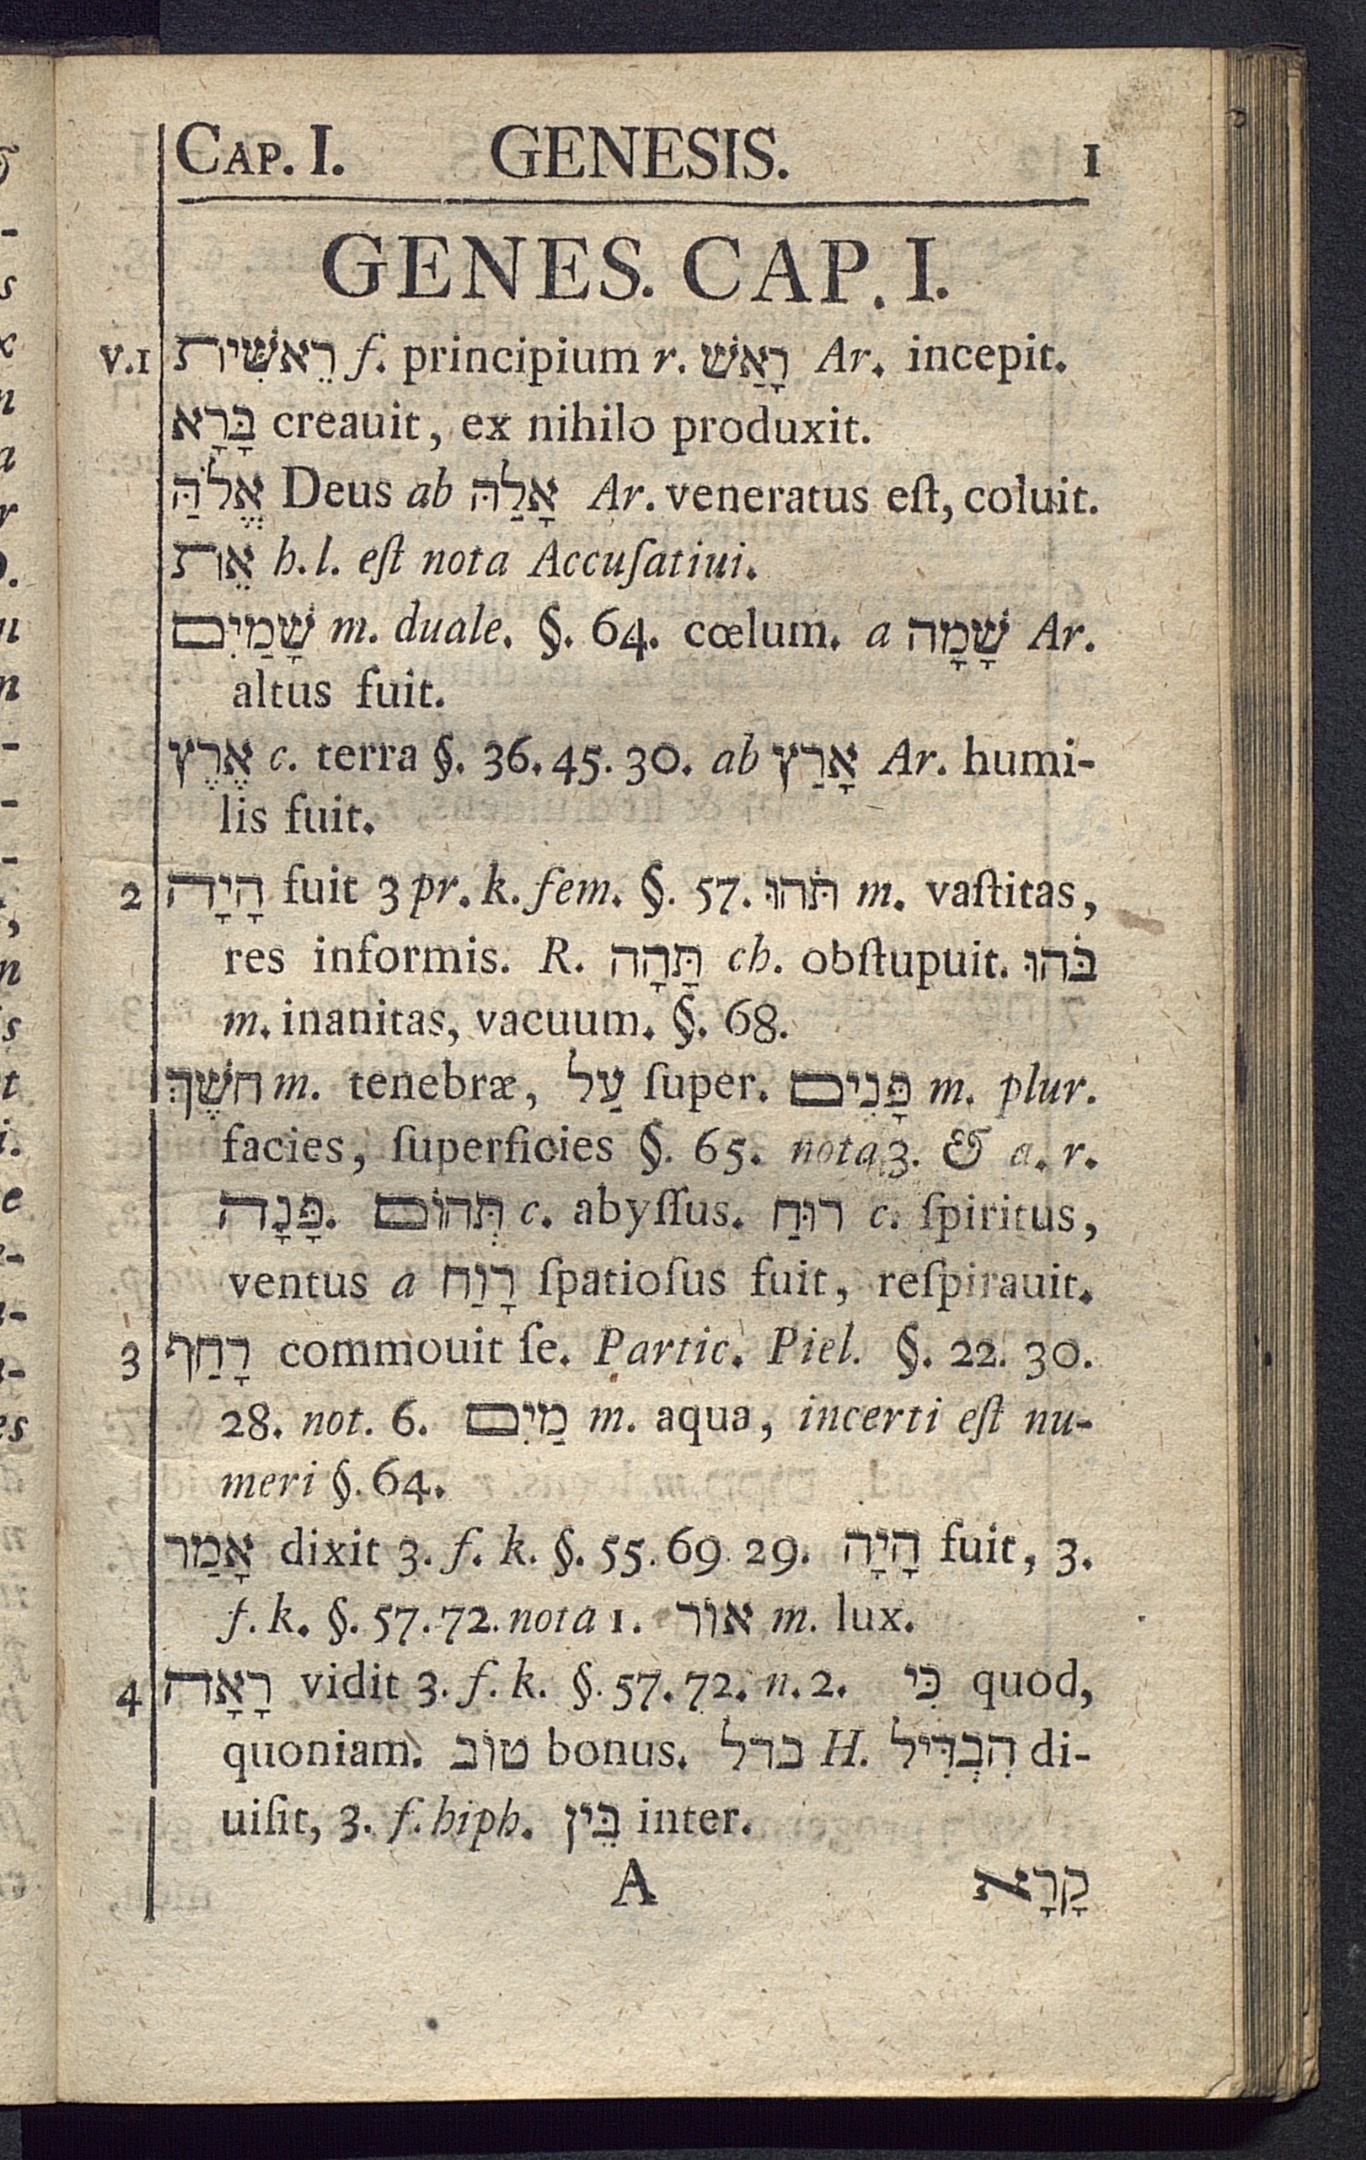 CAP. I. GENESIS. 1
GENES. CAP. I.
v.1 רֵאשִׁית f. principium r. רָאַשׁ Ar. incepit.
בָּרָא creauit, ex nihilo produxit.
אֱלֹהַּ Deus ab אָלַהּ Ar. veneratus eſt, coluit.
אֵת h. l. eſt nota Accuſatiui.
שָׁמַיִם m. duale. §. 64. cœlum. a שָׁמָה Ar.
altus fuit.
אֶרֶץ c. terra §. 36. 45. 30. ab אָרַץ Ar. humi-
lis fuit.
2 הָיָה fuit 3 pr. k. fem. §. 57. תֹּהוּ m. vaſtitas,
res informis. R. תָּהָה ch. obſtupuit. בֹּהוּ
m. inanitas, vacuum. §. 68.
חשֶׁךְ m. tenebræ, עַל ſuper. פָּנִים m. plur.
facies, ſuperficies §. 65. nota 3. & a. r.
פָּנָה. תְּהוֹם c. abyſſus. רוּחַ c. ſpiritus,
ventus a רָוַח ſpatioſus fuit, reſpirauit.
3 רָחַף commouit ſe. Partic. Piel. §. 22. 30.
28. not. 6. מַיִם m. aqua, incerti eſt nu-
meri §. 64.
אָמַר dixit 3. f. k. §. 55. 69. 29. הָיָה fuit, 3.
f. k. §. 57. 72. nota 1. אוֹר m. lux.
4 רָאָה vidit 3. f. k. §. 57. 72. n. 2. כִּי quod,
quoniam. טוֹב bonus. בדל H. הִבְדִּיל di-
uiſit, 3. f. hiph. בֵּין inter.
A קָרָא